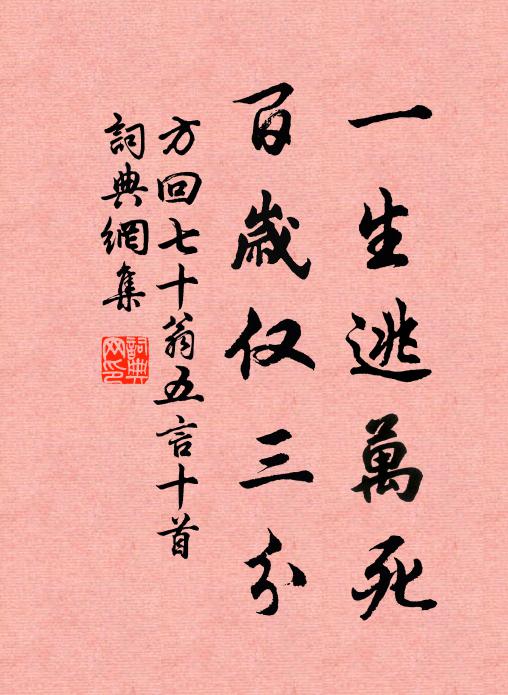 一生逃萬死
百歲仅三分
方回七十翁五言十首
詞典網集
詞典網印